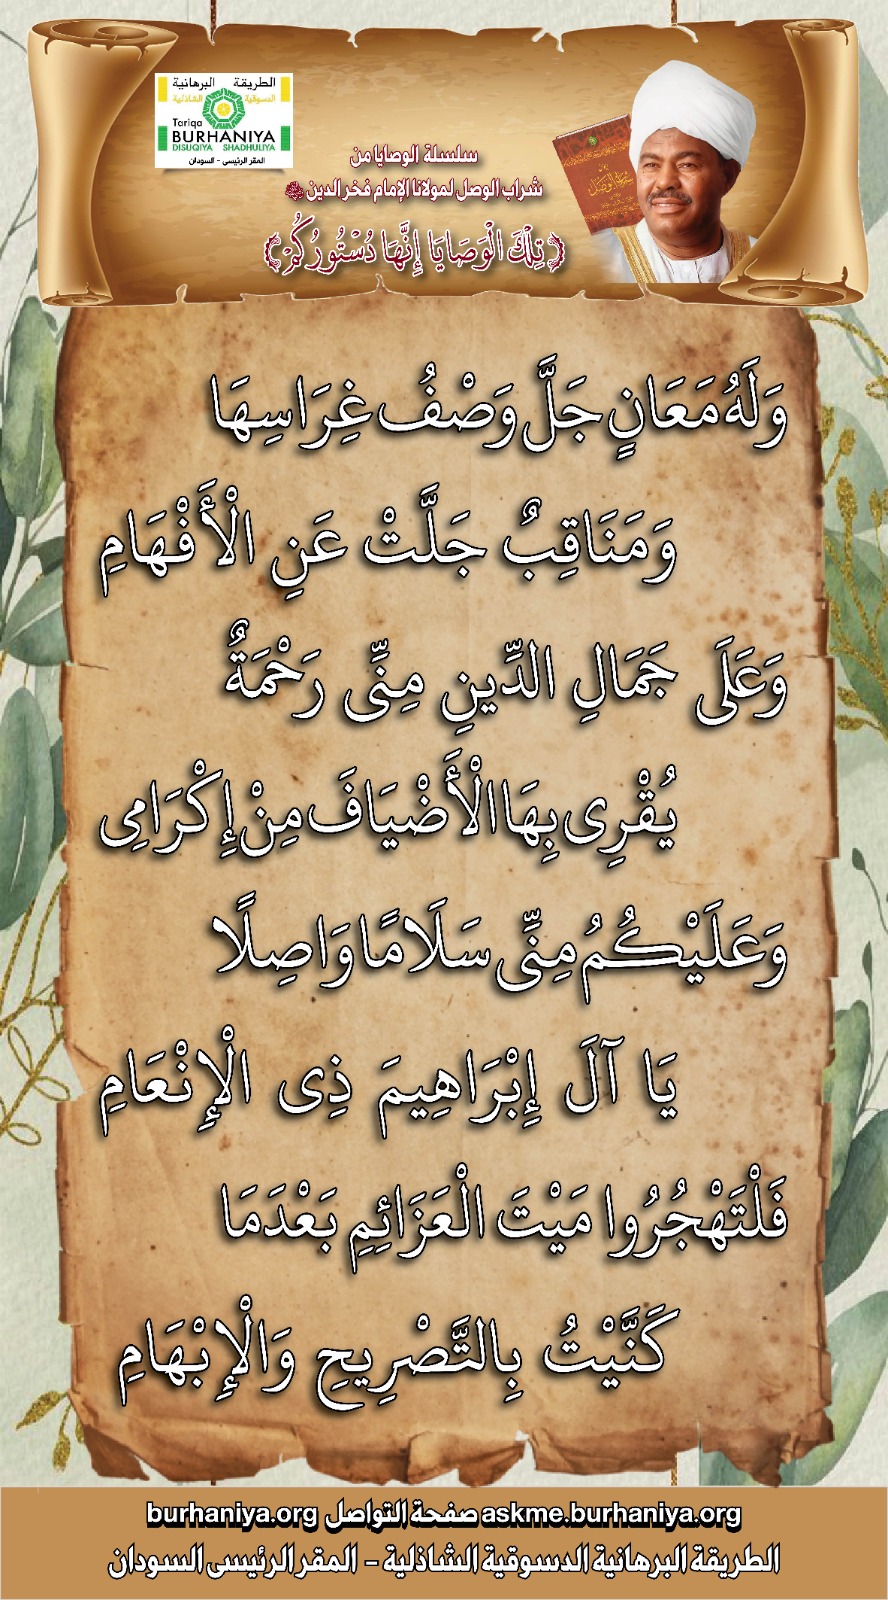 الطريقة البرهانية
الدسوقية الشاذلية
Tariqa
BURHANIYA
DISUQIYA SHADHULIYA
المقر الرئيسى - السودان
سلسلة الوصايا من
شراب الوصل لمولانا الإمام فخر الدين
﴿تِلْكَ الْوَصَايَا إِنَّهَا دُسْتُورُكُمْ﴾
وَلَهُ مَعَانٍ جَلَّ وَصْفُ غِرَاسِهَا
وَمَنَاقِبٌ جَلَّتْ عَنِ الْأَفْهَامِ
وَعَلَى جَمَالِ الدِّينِ مِنِّى رَحْمَةٌ
يُقْرِى بِهَا الْأَضْيَافَ مِنْ إِكْرَامِى
وَعَلَيْكُمُ مِنِّى سَلَامًا وَاصِلًا
يَا آلَ إِبْرَاهِيمَ ذِى الْإِنْعَامِ
فَلْتَهْجُرُوا مَيْتَ الْعَزَائِمِ بَعْدَمَا
كَنَّيْتُ بِالتَّصْرِيحِ وَالْإِبْهَامِ
askme.burhaniya.org صفحة التواصل burhaniya.org
الطريقة البرهانية الدسوقية الشاذلية - المقر الرئيسى السودان